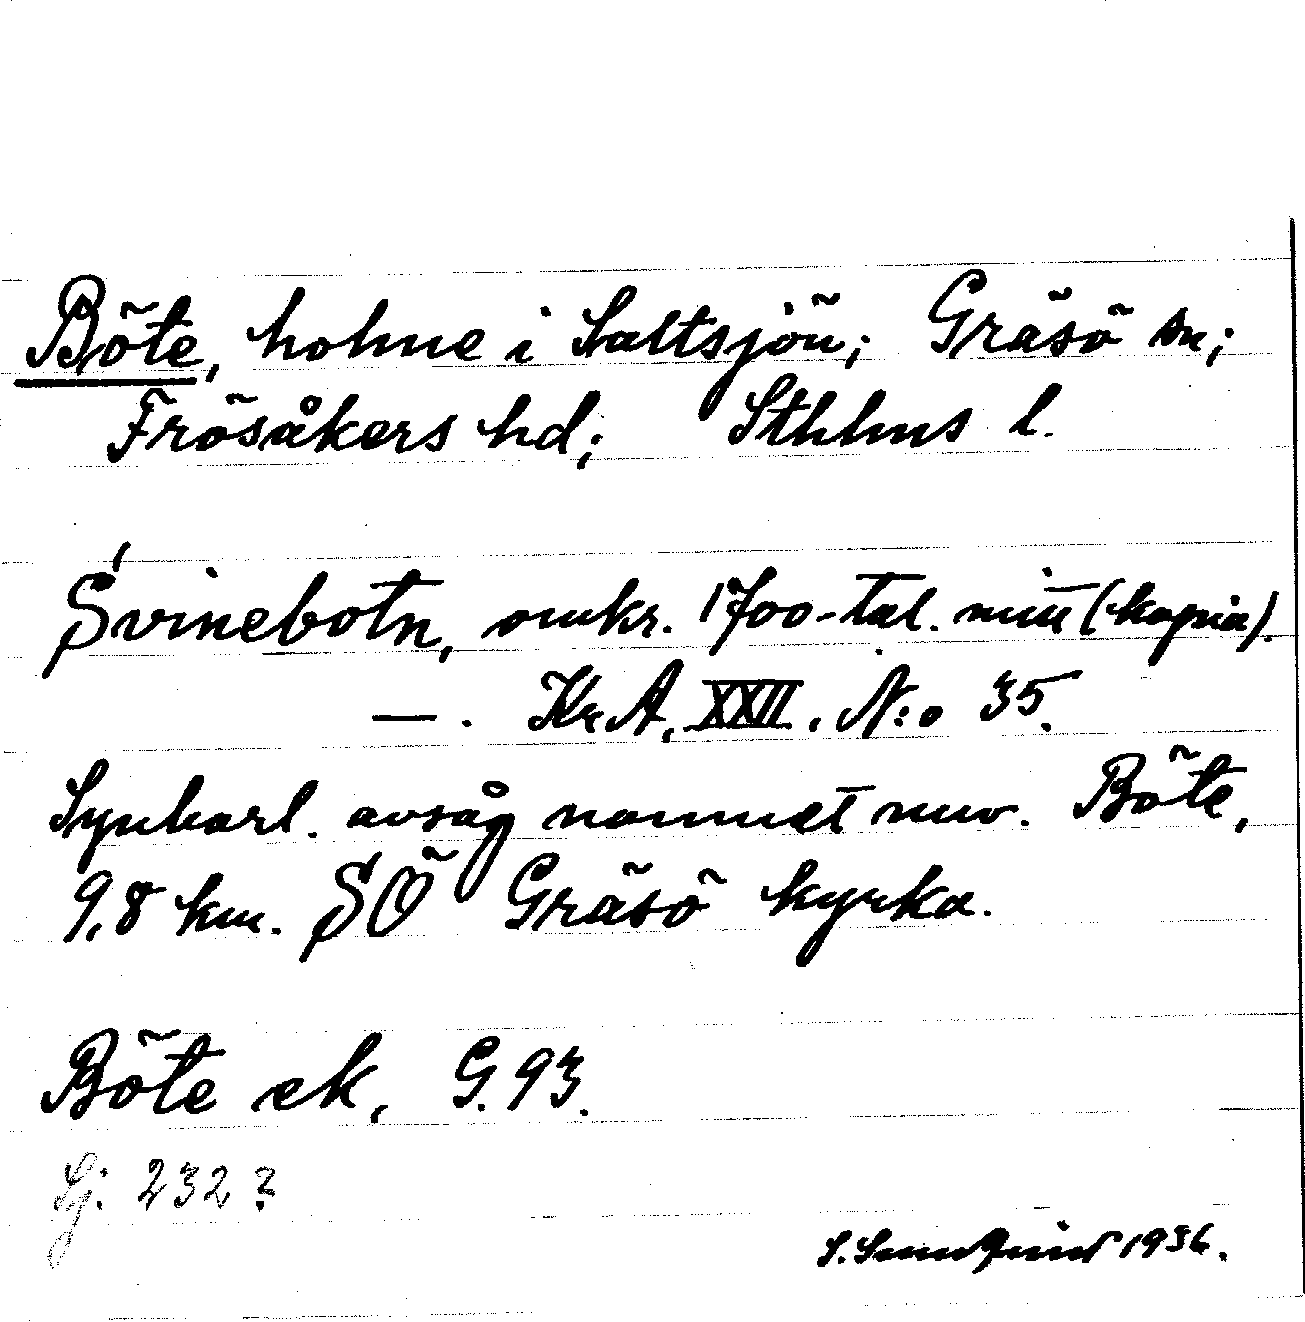 Böte, holme i Saltsjön; Gräsö sn;
Frösåkers hd; Sthlms l.
Svinebotn, omkr. 1700-tal. mitt (kopia).
— . Kr A, XXII. N:o 35.
Synbarl. avsåg namnet nuv. Böte,
9,8 km. SÖ Gräsö kyrka.
Böte ek, G. 93.
Sj: 232?
S. Sundquist 1936.